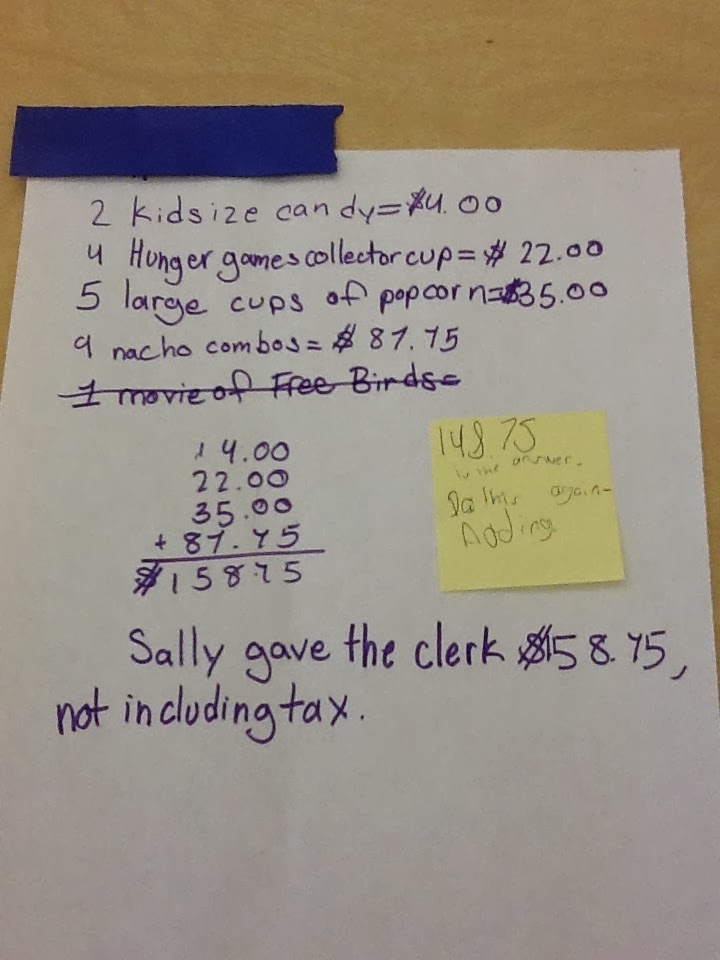 2 kidsize candy=$4.00
4 Hunger games collector cup= $ 22.00
5 large cups of popcorn=$35.00
9 nacho combos= $ 87.75
1 movie of Free Birds=
1 4.00
22.00
35.00
+ 87.75
$158.75
148.75
is the answer.
Do this again-
Adding
Sally gave the clerk $158.75,
not including tax.